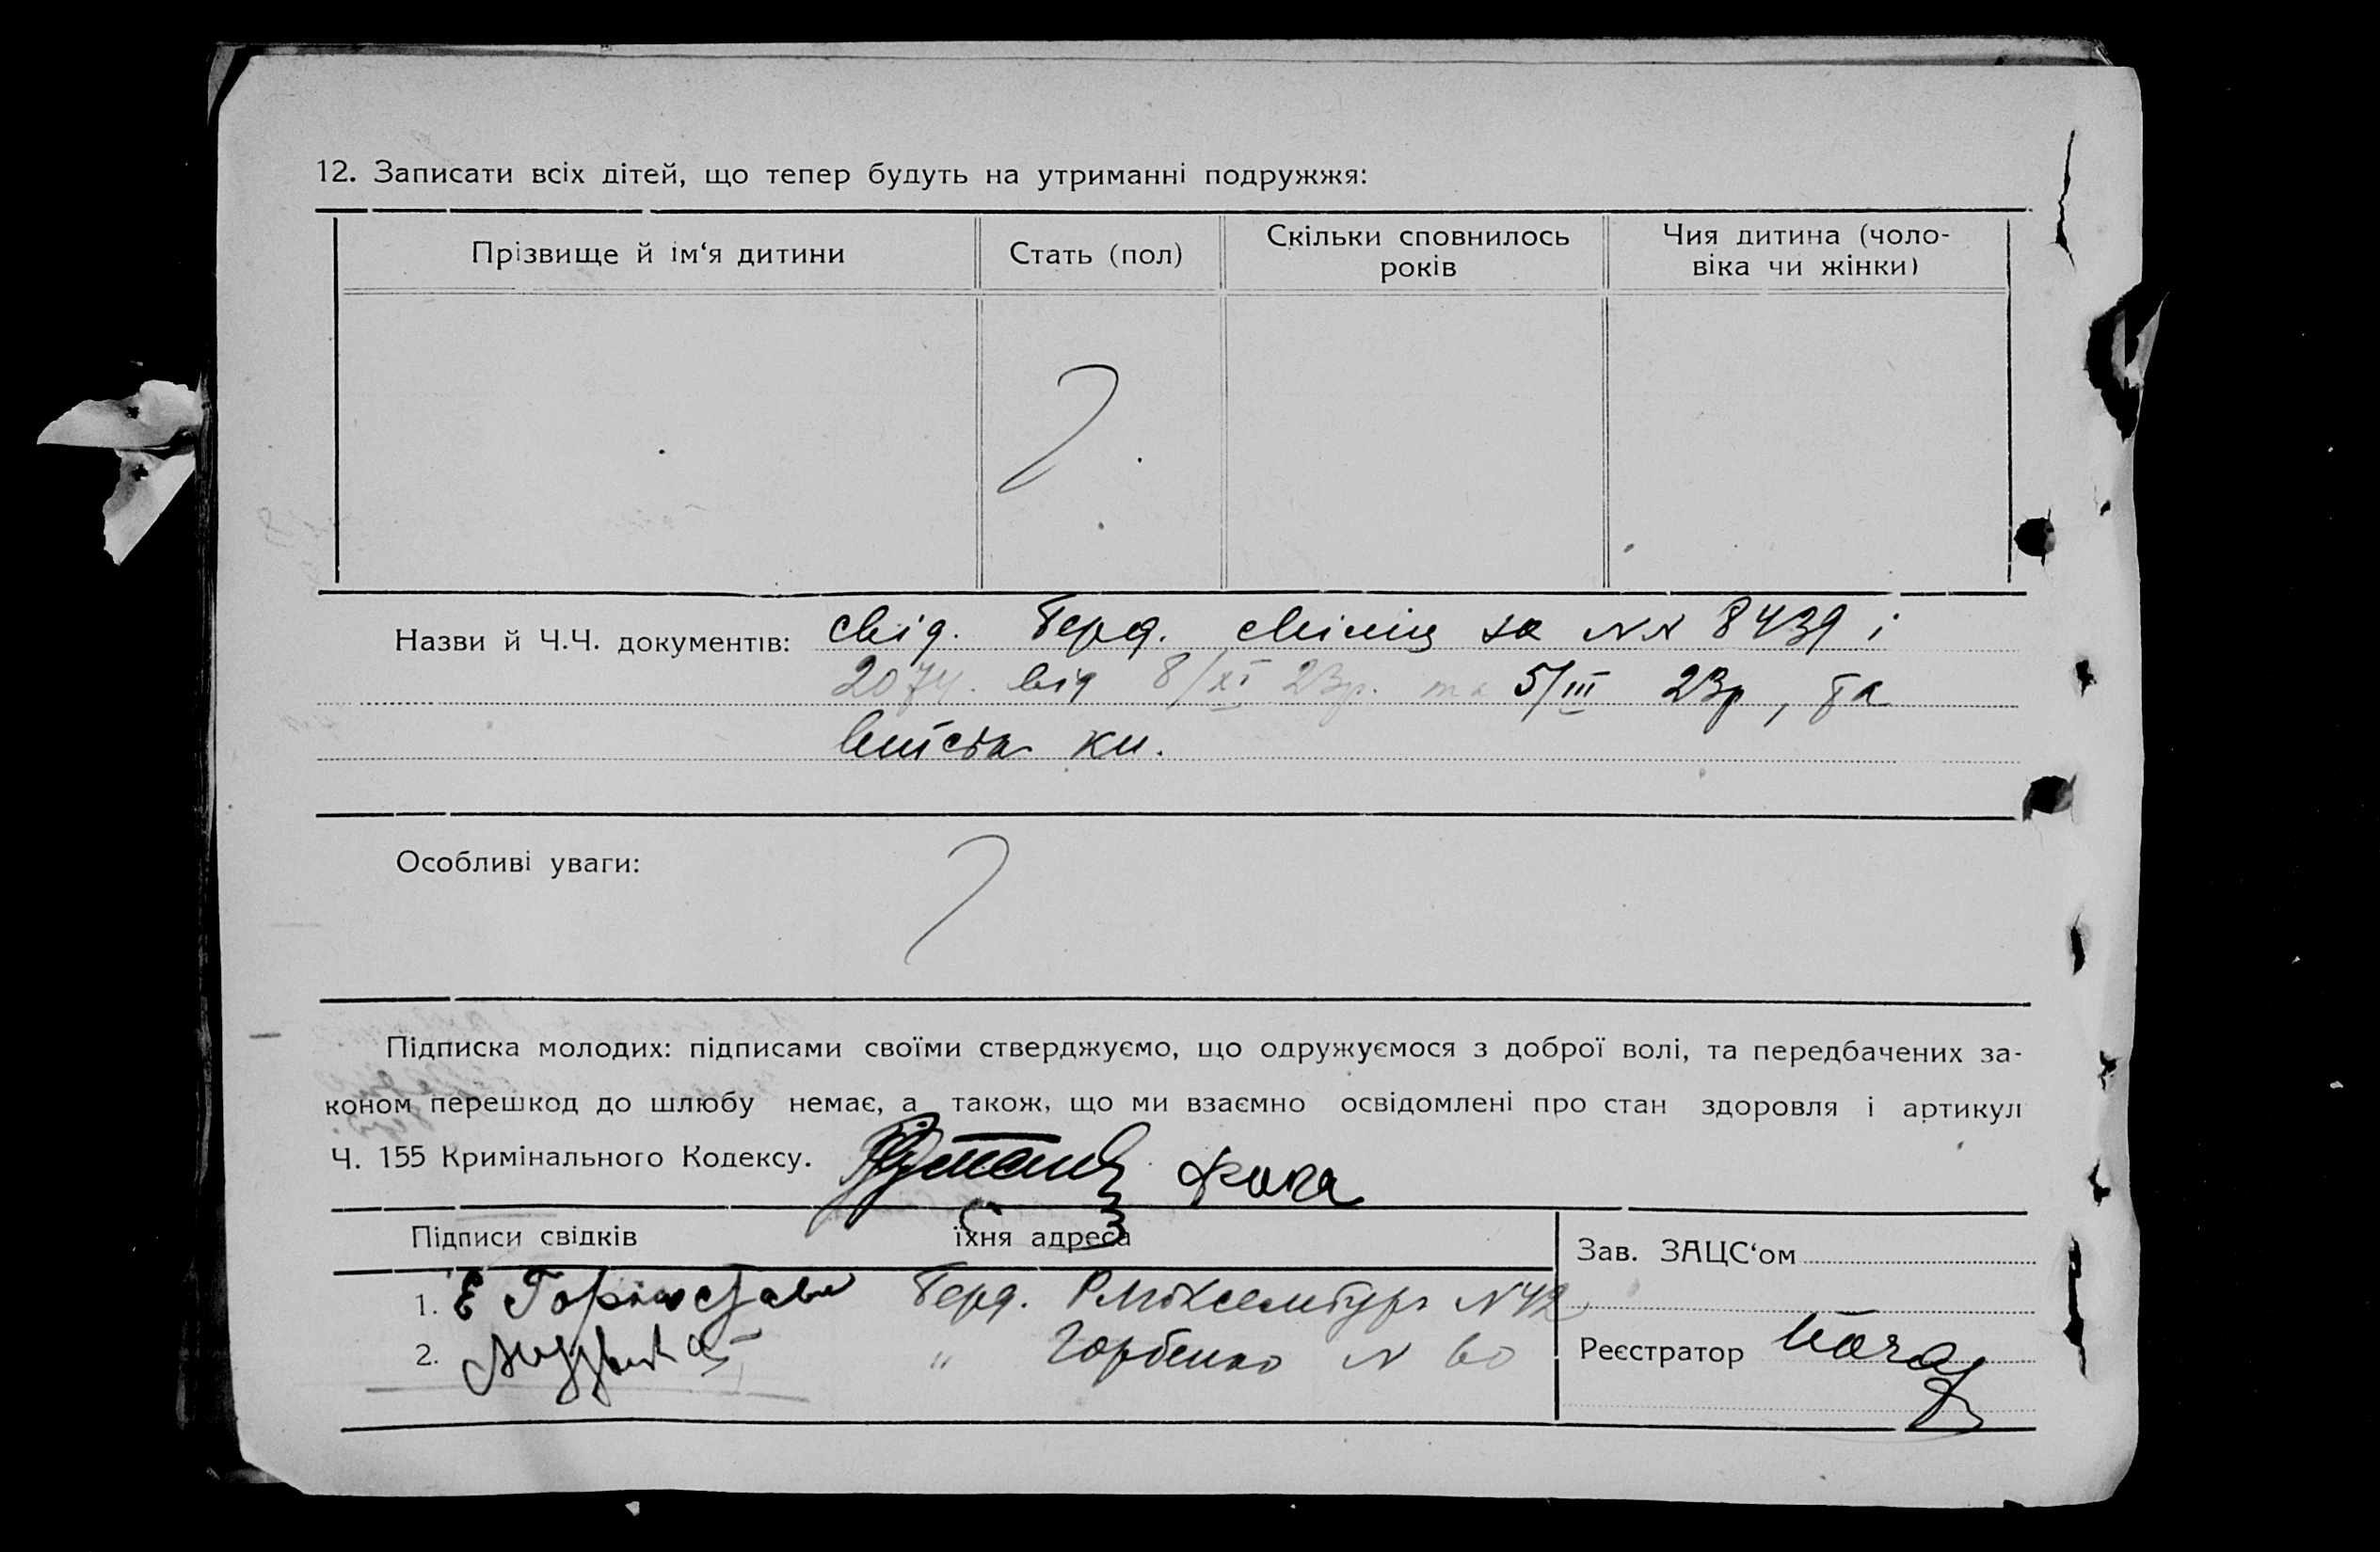 12. Записати всіх дітей, що тепер будуть на утриманні подружжя:
Прізвище й ім‘я дитини
Стать (пол)
Скільки сповнилось
років
Чия дитина (чоло-
віка чи жінки)
Назви й Ч.Ч. документів: свід. Берд. міліц за NN 8439 і
2074. від 8/XI 23р. та 5/III 23р, та
кн.
Особливі уваги:
Підписка молодих: підписами своїми стверджуємо, що одружуємося з доброї волі, та передбачених за-
коном перешкод до шлюбу немає, а також, що ми взаємно освідомлені про стан здоровля і артикул
Ч. 155 Кримінального Кодексу.
Підписи свідків
їхня адреса
1. Е Берд. Р Люксембург N 42
2. " Горбенко N 60
Зав. ЗАЦС‘ом
Реєстратор